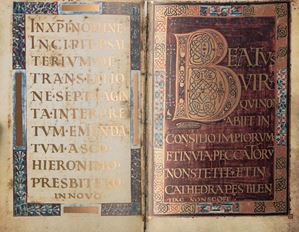 INXPINOMINE
INCIPIT PSAL
TERIUM DE
TRANSLATIO
NE SEPTUAGIN
TA INTERPRE
TUM EMENDA
TUM ASCO
HIERONIMO
PRESBITERO
IN NOVO
BEATUS
VIR
QUI NO
ABIIT IN
CONSILIO IMPIORUM
ET IN VIA PECCATORU
NON STETIT ET IN
CATHEDRA PESTILEN
TIAE NON SEDIT